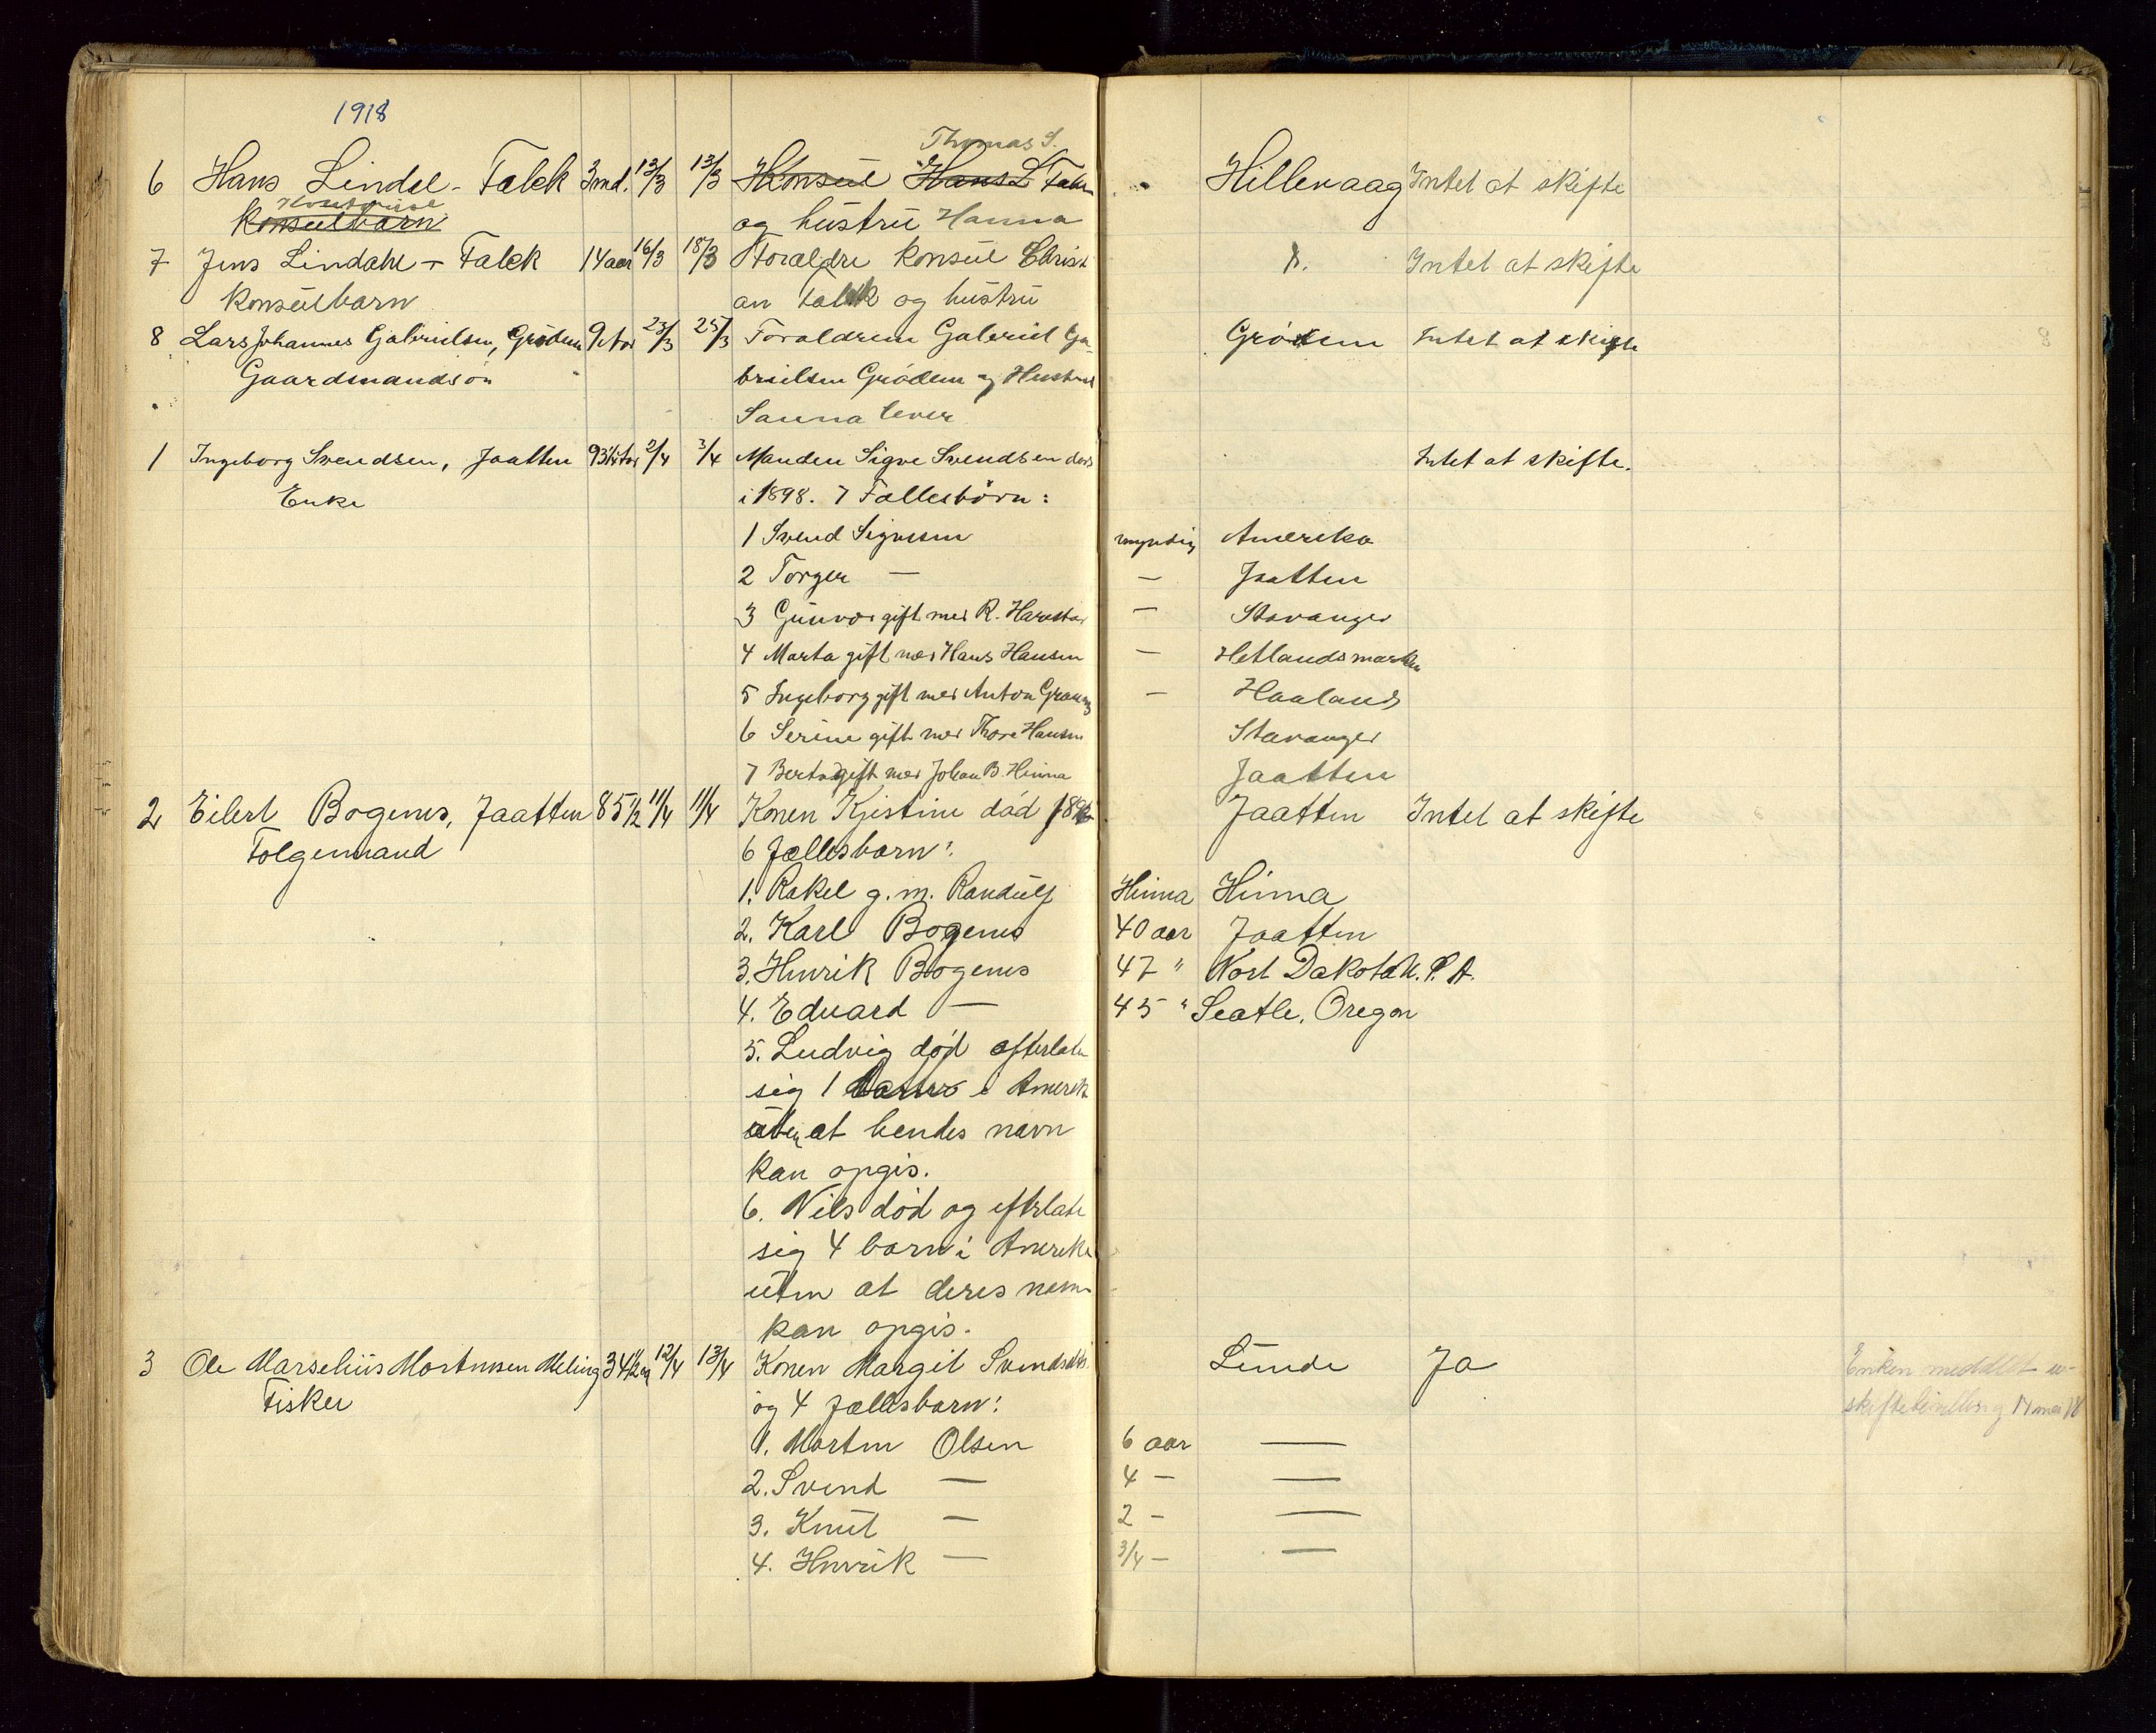 1918
Thomas S.
6 Hans Lindel - Falck 3 md. 13/3 13/3 Konsul Hans L Falck Hillevaag Intet at skifte
Konsulbarn og hustru Hanna
7 Jens Lindahl - Falck 14 aar 16/3 18/3 Foraldre Konsul Christ D. Intet at skifte
Konsulbarn an Falck og hustru
8 Lars Johannes Gabrielsen, Grödem 23/3 25/3 Foraldrene Gabriel Ga- Grödem Intet at skifte
Gaardmandsön brielsen Grödem og Hustru
Sanna lever
1 Ingeborg Svendsen, Jaatten 2/4 3/4 Manden Sigve Svendsen död Intet at skifte.
Enke i 1898. 7 Fællesbörn:
1 Svend Sigvesen myndig Amerika
2 Torger — — Jaatten
3 Gunvor gift med R. Harestad — Stavanger
4 Marta gift med Hans Hansen — Hetlandsmarken
5 Ingeborg gift med Anton — Haaland
6 Serine gift med Thore Hansen Stavanger
7 Berta gift med Johan B. Hinna Jaatten
2 Eilert Bogenes, Jaatten 85 1/2 11/4 11/4 Konen Kjistine död Jaatten Intet at skifte
Folgemand 6 fællesbarn:
1. Rakel g. m. Randulf Hinna Hinna
2. Karl Bogenes 40 aar Jaatten
3. Henrik Bogenes 47 " Nort Dakota U. S. A.
4. Eduard — 45 " Seatle, Oregon
5. Ludvig död efterlate
sig 1 i Amerika
uten at hendes navn
kan opgis.
6. Nils död og efterlate
sig 4 barn i Amerika
uten at deres navn
kan opgis.
3 Ole Marselius Mortensen Meling 34 1/2 aar 12/4 13/4 Konen Margit Svendsdtr. Lunde Ja Enken meddelt u-
Fisker og 4 fællesbarn: skiftebevilling 14 mai 18
1. Morten Olsen 6 aar —
2. Svend — 4 — —
3. Knut — 2 - —
4. Henrik — 3/4 — —